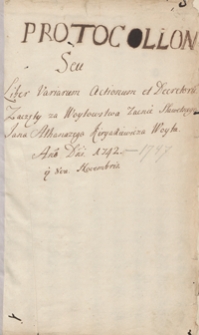 PROTOCOLLON
Seu
Liber Variarum Actionum et Decretorū
Zaczęty za Woytowstwa Zacnie Sławetnego
Jana Athanazego Woyta
Anō Dni 1742 — 1747
9 9bris Novembris